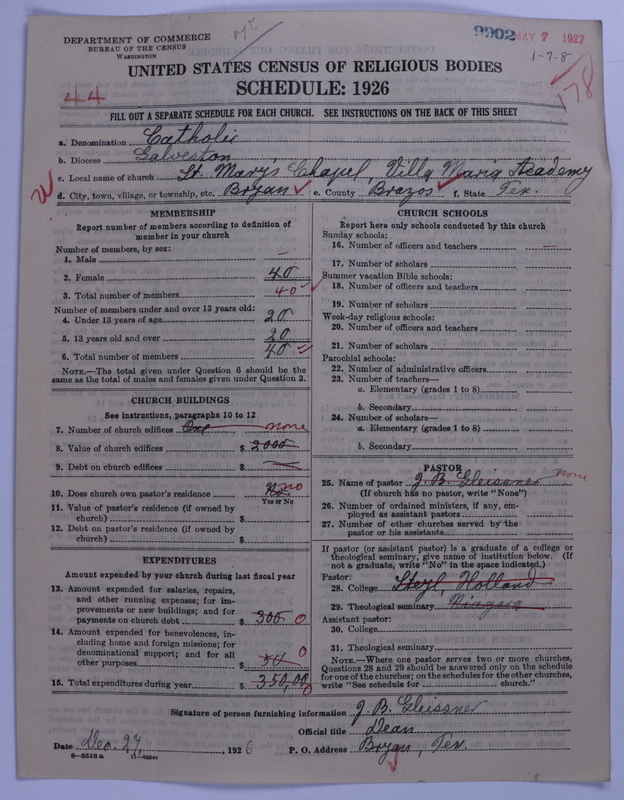 DEPARTMENT OF COMMERCE
BUREAU OF THE CENSUS
WASHINGTON
9902 MAY 7 1927
1-7-8
UNITED STATES CENSUS OF RELIGIOUS BODIES
SCHEDULE: 1926
44
178
FILL OUT A SEPARATE SCHEDULE FOR EACH CHURCH. SEE INSTRUCTIONS ON THE BACK OF THIS SHEET
a. Denomination Catholic
b. Diocese Galveston
c. Local name of church St. Mary's Chapel, Villa Maria Academy
d. City, town, village, or township, etc. Bryan e. County Brazos f. State Tex.
MEMBERSHIP
Report number of members according to definition of
member in your church
Number of members, by sex:
1. Male –
2. Female 40
3. Total number of members 40
Number of members under and over 13 years old:
4. Under 13 years of age 20
5. 13 years old and over 20
6. Total number of members 40
NOTE.—The total given under Question 6 should be
same as the total of males and females given under Question 3.
CHURCH BUILDINGS
See instructions, paragraphs 10 to 12
7. Number of church edifices One none
8. Value of church edifices $ 2000
9. Debt on church edifices $ —
10. Does church own pastor's residence No no
Yes or No
11. Value of pastor's residence (if owned by
church) $
12. Debt on pastor's residence (if owned by
church) $
EXPENDITURES
Amount expended by your church during last fiscal year
13. Amount expended for salaries, repairs,
and other running expenses; for im-
provements or new buildings; and for
payments on church debt $ 300 0
14. Amount expended for benevolences, in-
cluding home and foreign missions; for
denominational support; and for all
other purposes $ 50 0
15. Total expenditures during year $ 350,00 0
CHURCH SCHOOLS
Report here only schools conducted by this church
Sunday schools:
16. Number of officers and teachers —
17. Number of scholars
Summer vacation Bible schools:
18. Number of officers and teachers
19. Number of scholars
Week-day religious schools:
20. Number of officers and teachers
21. Number of scholars
Parochial schools:
22. Number of administrative officers
23. Number of teachers—
a. Elementary (grades 1 to 8)
b. Secondary
24. Number of scholars—
a. Elementary (grades 1 to 8)
b. Secondary
PASTOR
25. Name of pastor J. B. Gleissner none
(If church has no pastor, write "None")
26. Number of ordained ministers, if any, em-
ployed as assistant pastors
27. Number of other churches served by the
pastor or his assistants
If pastor (or assistant pastor) is a graduate of a college or
theological seminary, give name of institution below. (If
not a graduate, write "No" in the space indicated.)
Pastor:
28. College Steyl, Holland
29. Theological seminary Niagara
Assistant pastor:
30. College
31. Theological seminary
NOTE.—Where one pastor serves two or more churches,
Questions 28 and 29 should be answered only on the schedule
for one of the churches; on the schedules for the other churches,
write "See schedule for church."
Signature of person furnishing information J. B. Gleissner
Official title Dean
Date Dec. 27, 1926 P. O. Address Bryan, Tex.
8—5518 a